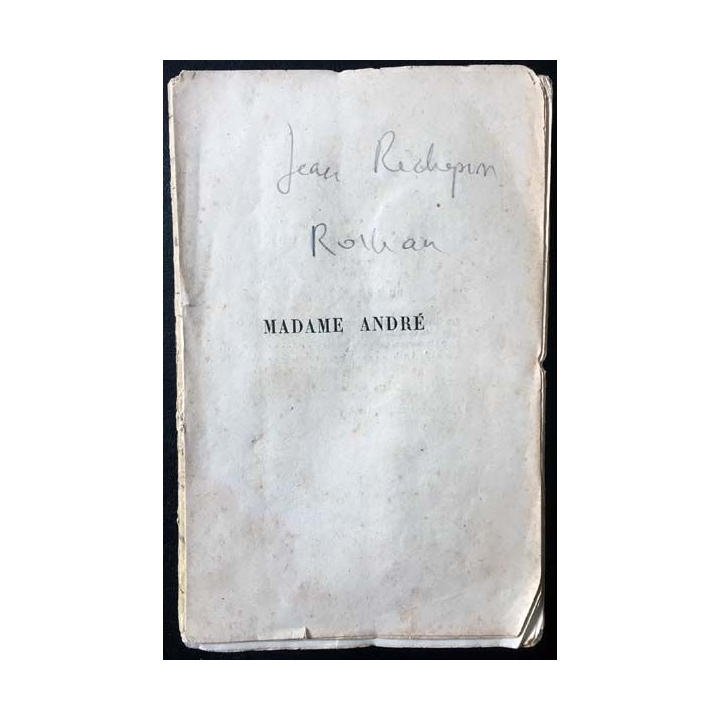 Jean Richepin
Roman
MADAME ANDRÉ